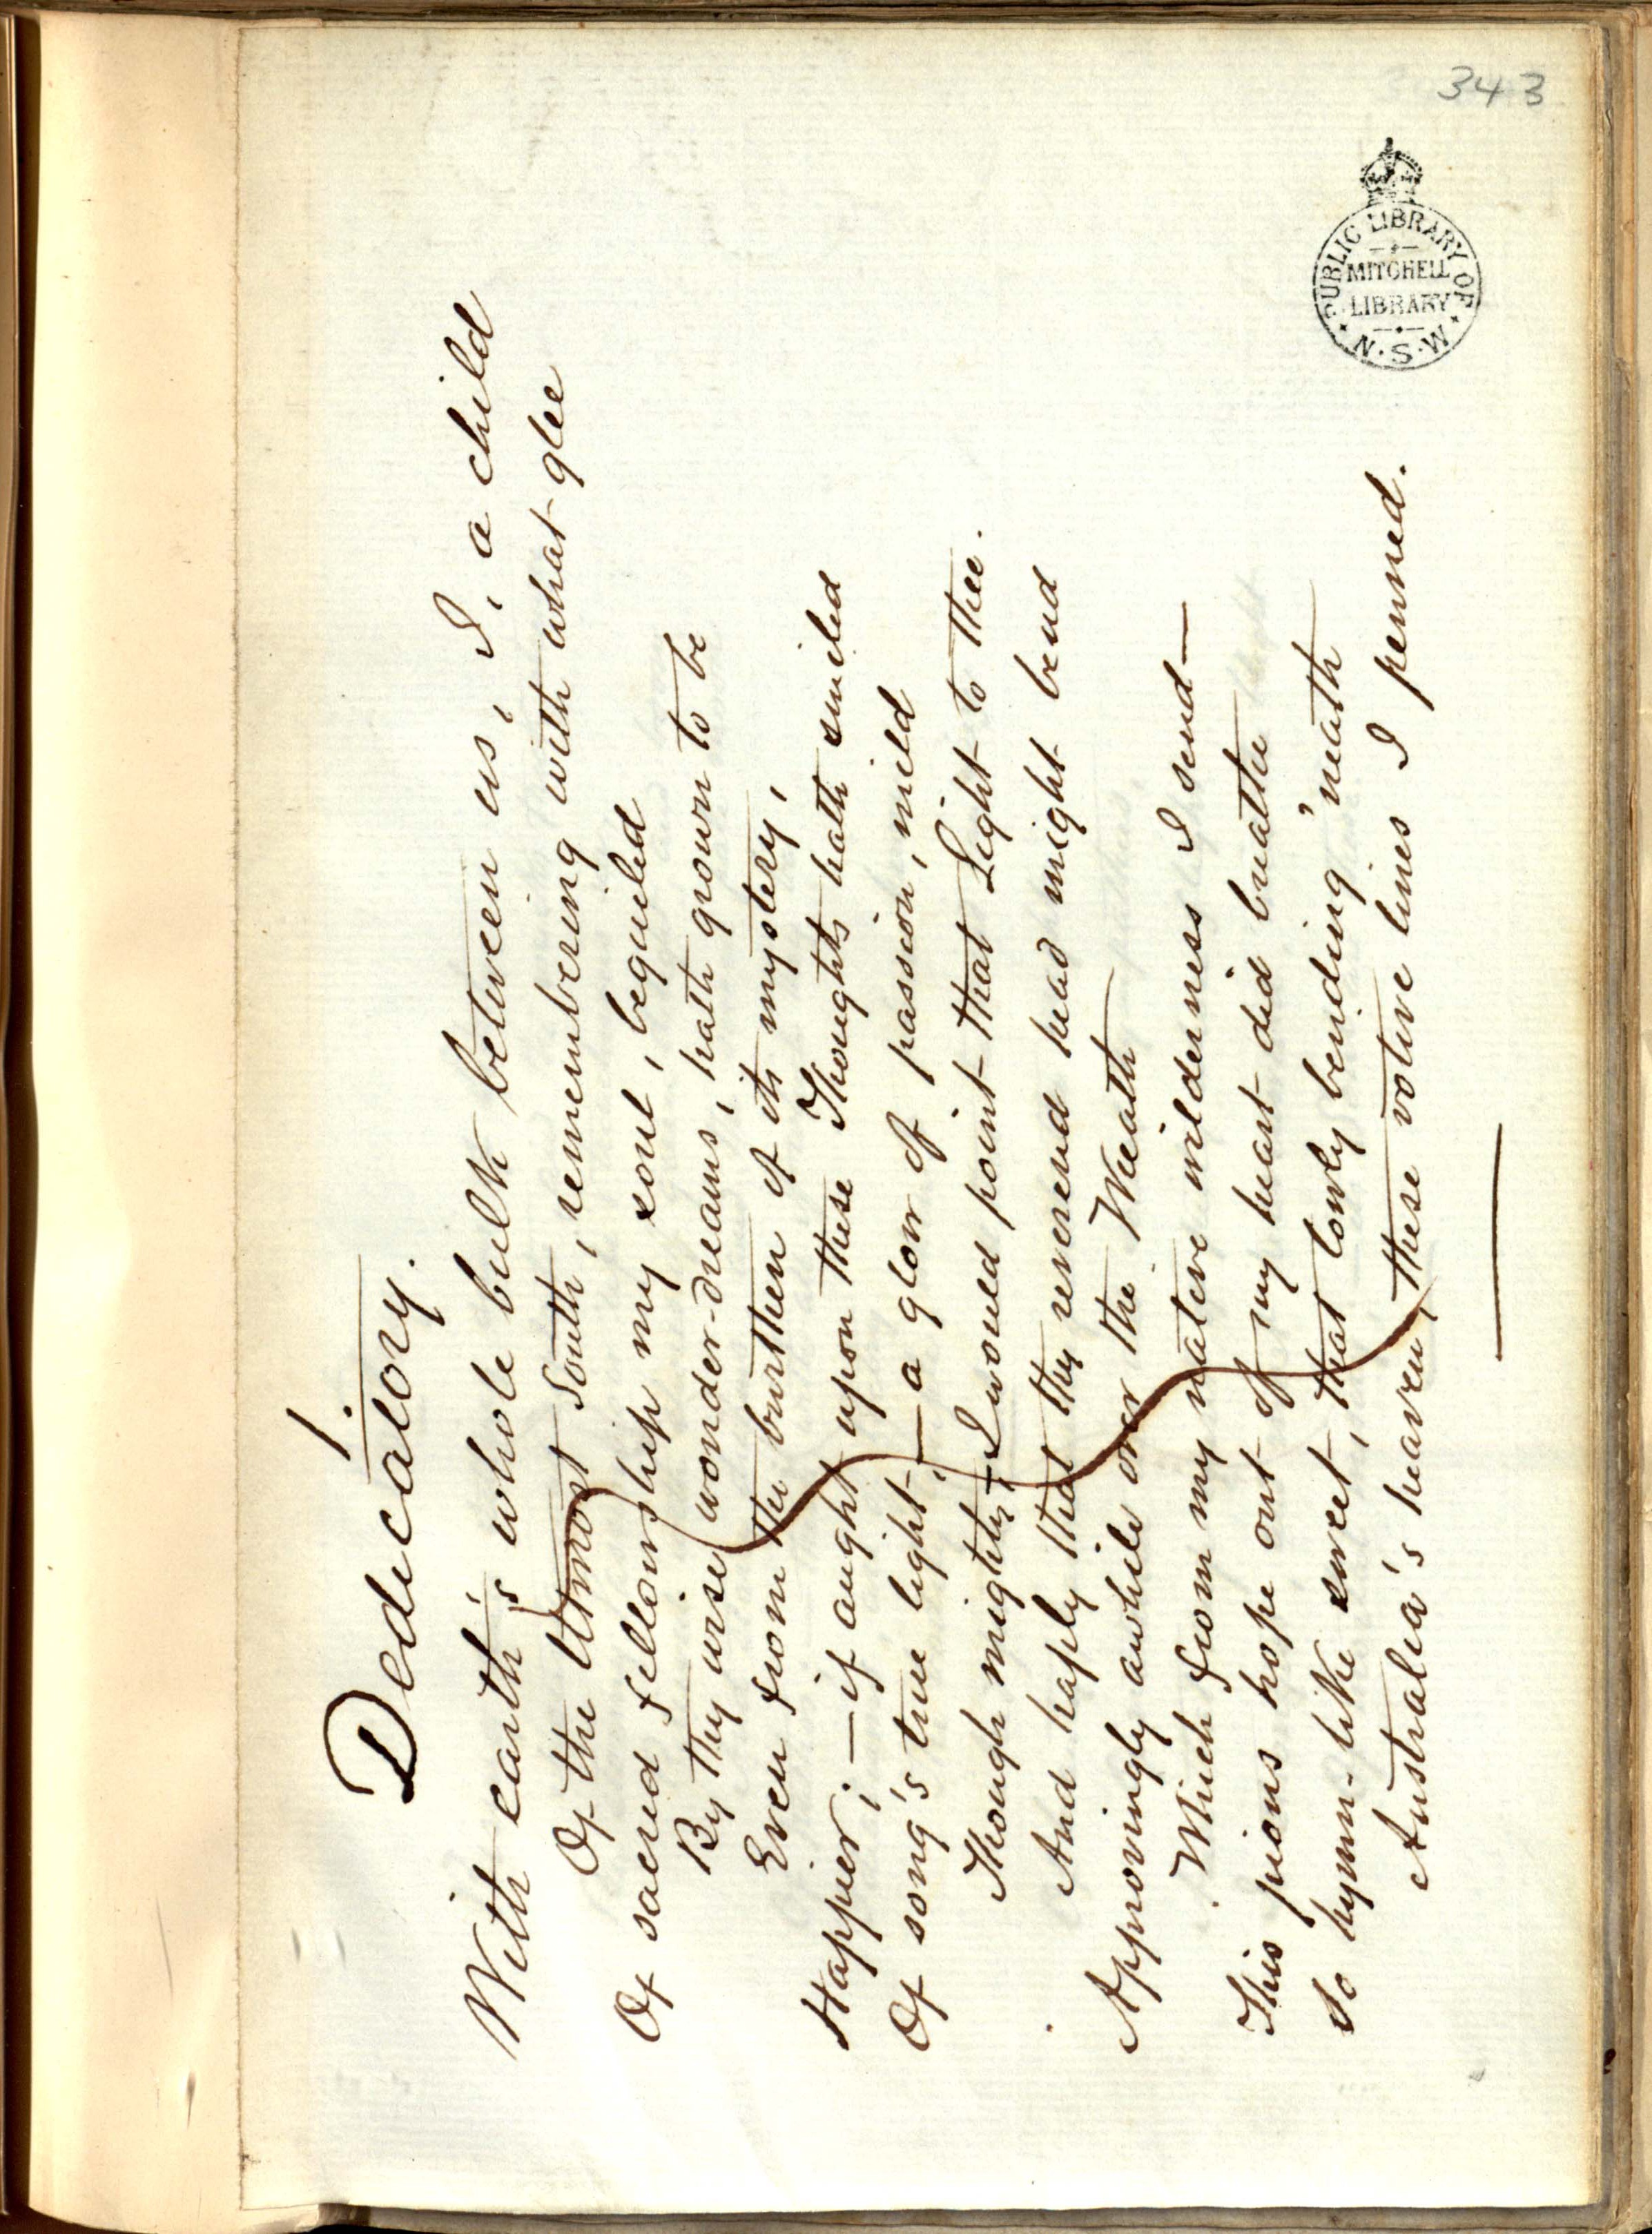 343
PUBLIC LIBRARY OF N.S.W.
MITCHELL
LIBRARY
1.
Dedicatory.
With earth's whole bulk between us, I, a child
Of the Utmost South, remembering with what glee
Of sacred fellowship my soul, beguiled
By thy wise wonder-dreams, hath grown to be
Even from the burthen of its mystery,
Happier; — if aught upon these Thoughts hath smiled
Of song's true light, — a glow of passion, mild
Though mighty, — I would point that Light to thee.
And haply that thy reverend head might bend
Approvingly awhile over the Wreath
Which from my native wilderness I send —
This pious hope out of my heart did breathe
So hymn-like sweet, that lowly bending 'neath
Australia's heaven, these votive lines I penned.